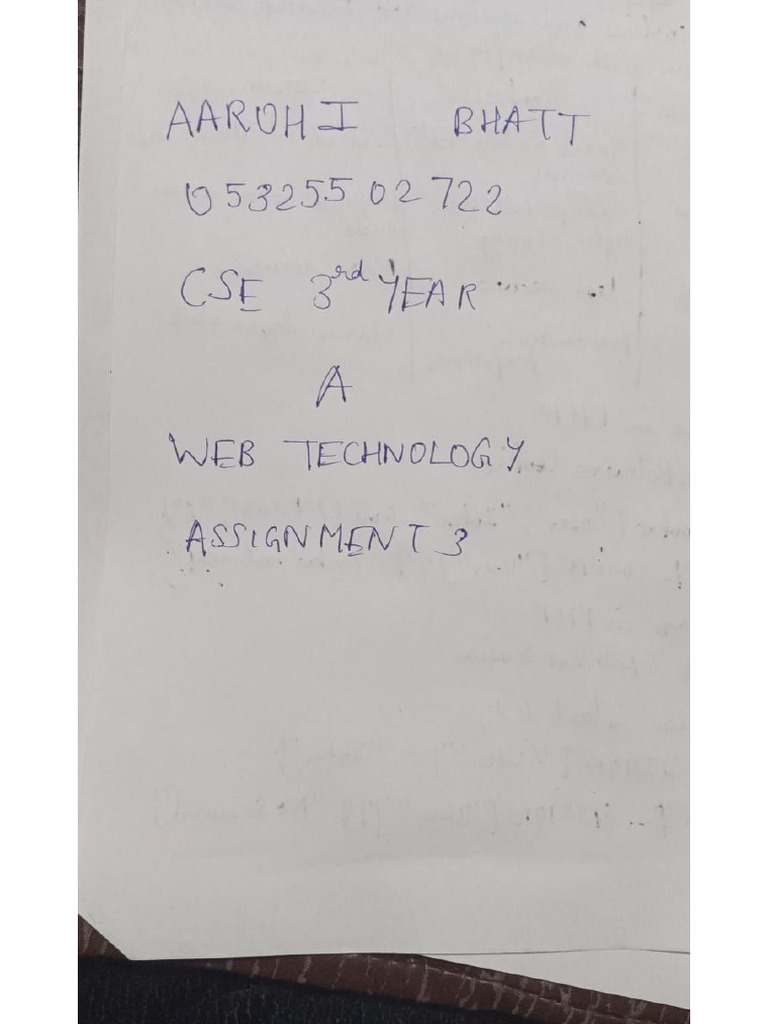 AAROHI BHATT
05325502722
CSE 3rd YEAR
A
WEB TECHNOLOGY
ASSIGNMENT 3